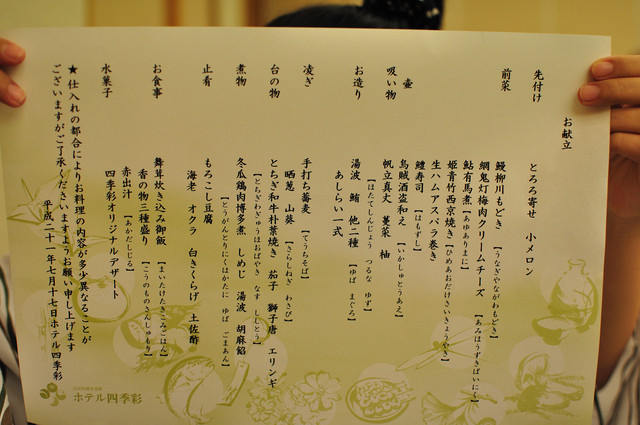 お献立
先付け　とろろ寄せ　小メロン
前菜　鰻柳川もどき　【うなぎやながわもどき】
網鬼灯梅肉クリームチーズ　【あみほうずきばいにく】
鮎有馬煮【あゆありまに】
姫青竹西京焼き【ひめあおだけさいきょうやき】
生ハムアスパラ巻き
鱧寿司　【はもずし】
壷　烏賊酒盗和え　【いかしゅとうあえ】
吸い物　帆立真丈　蔓菜　柚
【ほたてしんじょう　つるな　ゆず】
お造り　湯波　鮪　他二種　【ゆば　まぐろ】
あしらい一式
凌ぎ　手打ち蕎麦　【てうちそば】
晒葱　山葵　【さらしねぎ　わさび】
台の物　とちぎ和牛朴葉焼き　茄子　獅子唐　エリンギ
【とちぎわぎゅうほおばやき　なす　ししとう】
煮物　冬瓜鶏肉博多煮　しめじ　湯波　胡麻餡
【とうがんとりにくはかたに　ゆば　ごまあん】
止肴　もろこし豆腐
海老　オクラ　白きくらげ　土佐酢
お食事　舞茸炊き込み御飯　【まいたけたきこみごはん】
香の物三種盛り　【こうのものさんしゅもり】
赤出汁　【あかだしじる】
水菓子　四季彩オリジナルデザート
★仕入れの都合によりお料理の内容が多少異なることが
ございますが、ご了承くださいますようお願い申し上げます
平成二十一年七月十七日ホテル四季彩
ホテル四季彩